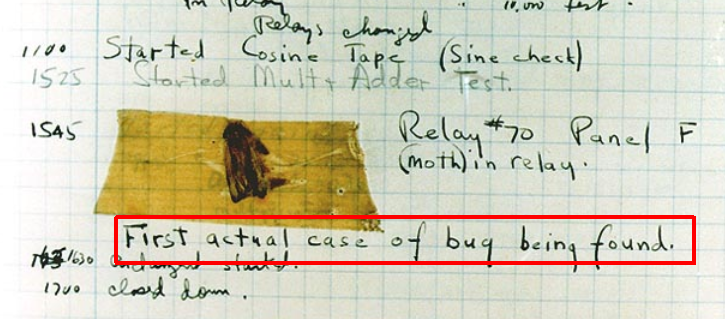 Relays changed
1100 Started Cosine Tape (Sine check)
1525 Started Mult + Adder Test.
1545 Relay #70 Panel F
(moth) in relay.
First actual case of bug being found.
1630 started.
1700 closed down.